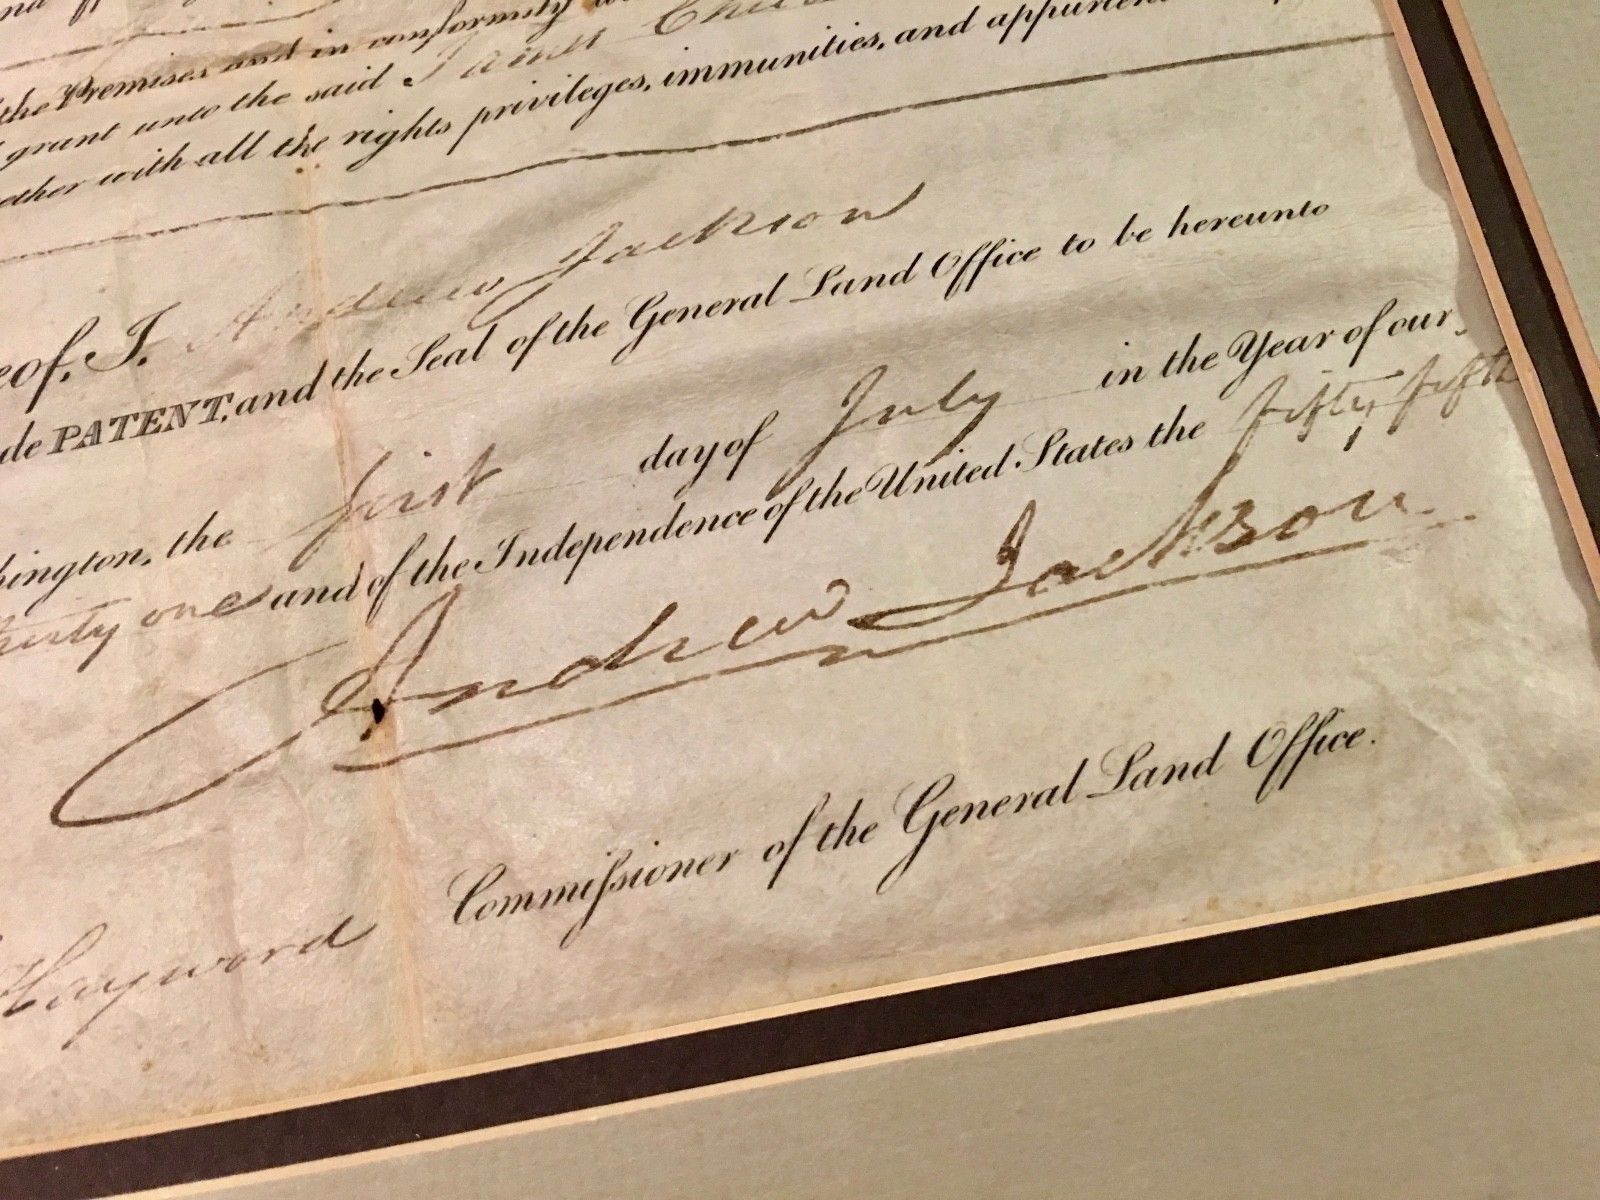 the Premises and in conformity
grant unto the said James
with all the rights privileges, immunities, and
I. Andrew Jackson
PATENT, and the Seal of the General Land Office to be hereunto
the first day of July in the Year of our
one and of the Independence of the United States the fifty fifth
Andrew Jackson
Hayward Commissioner of the General Land Office.